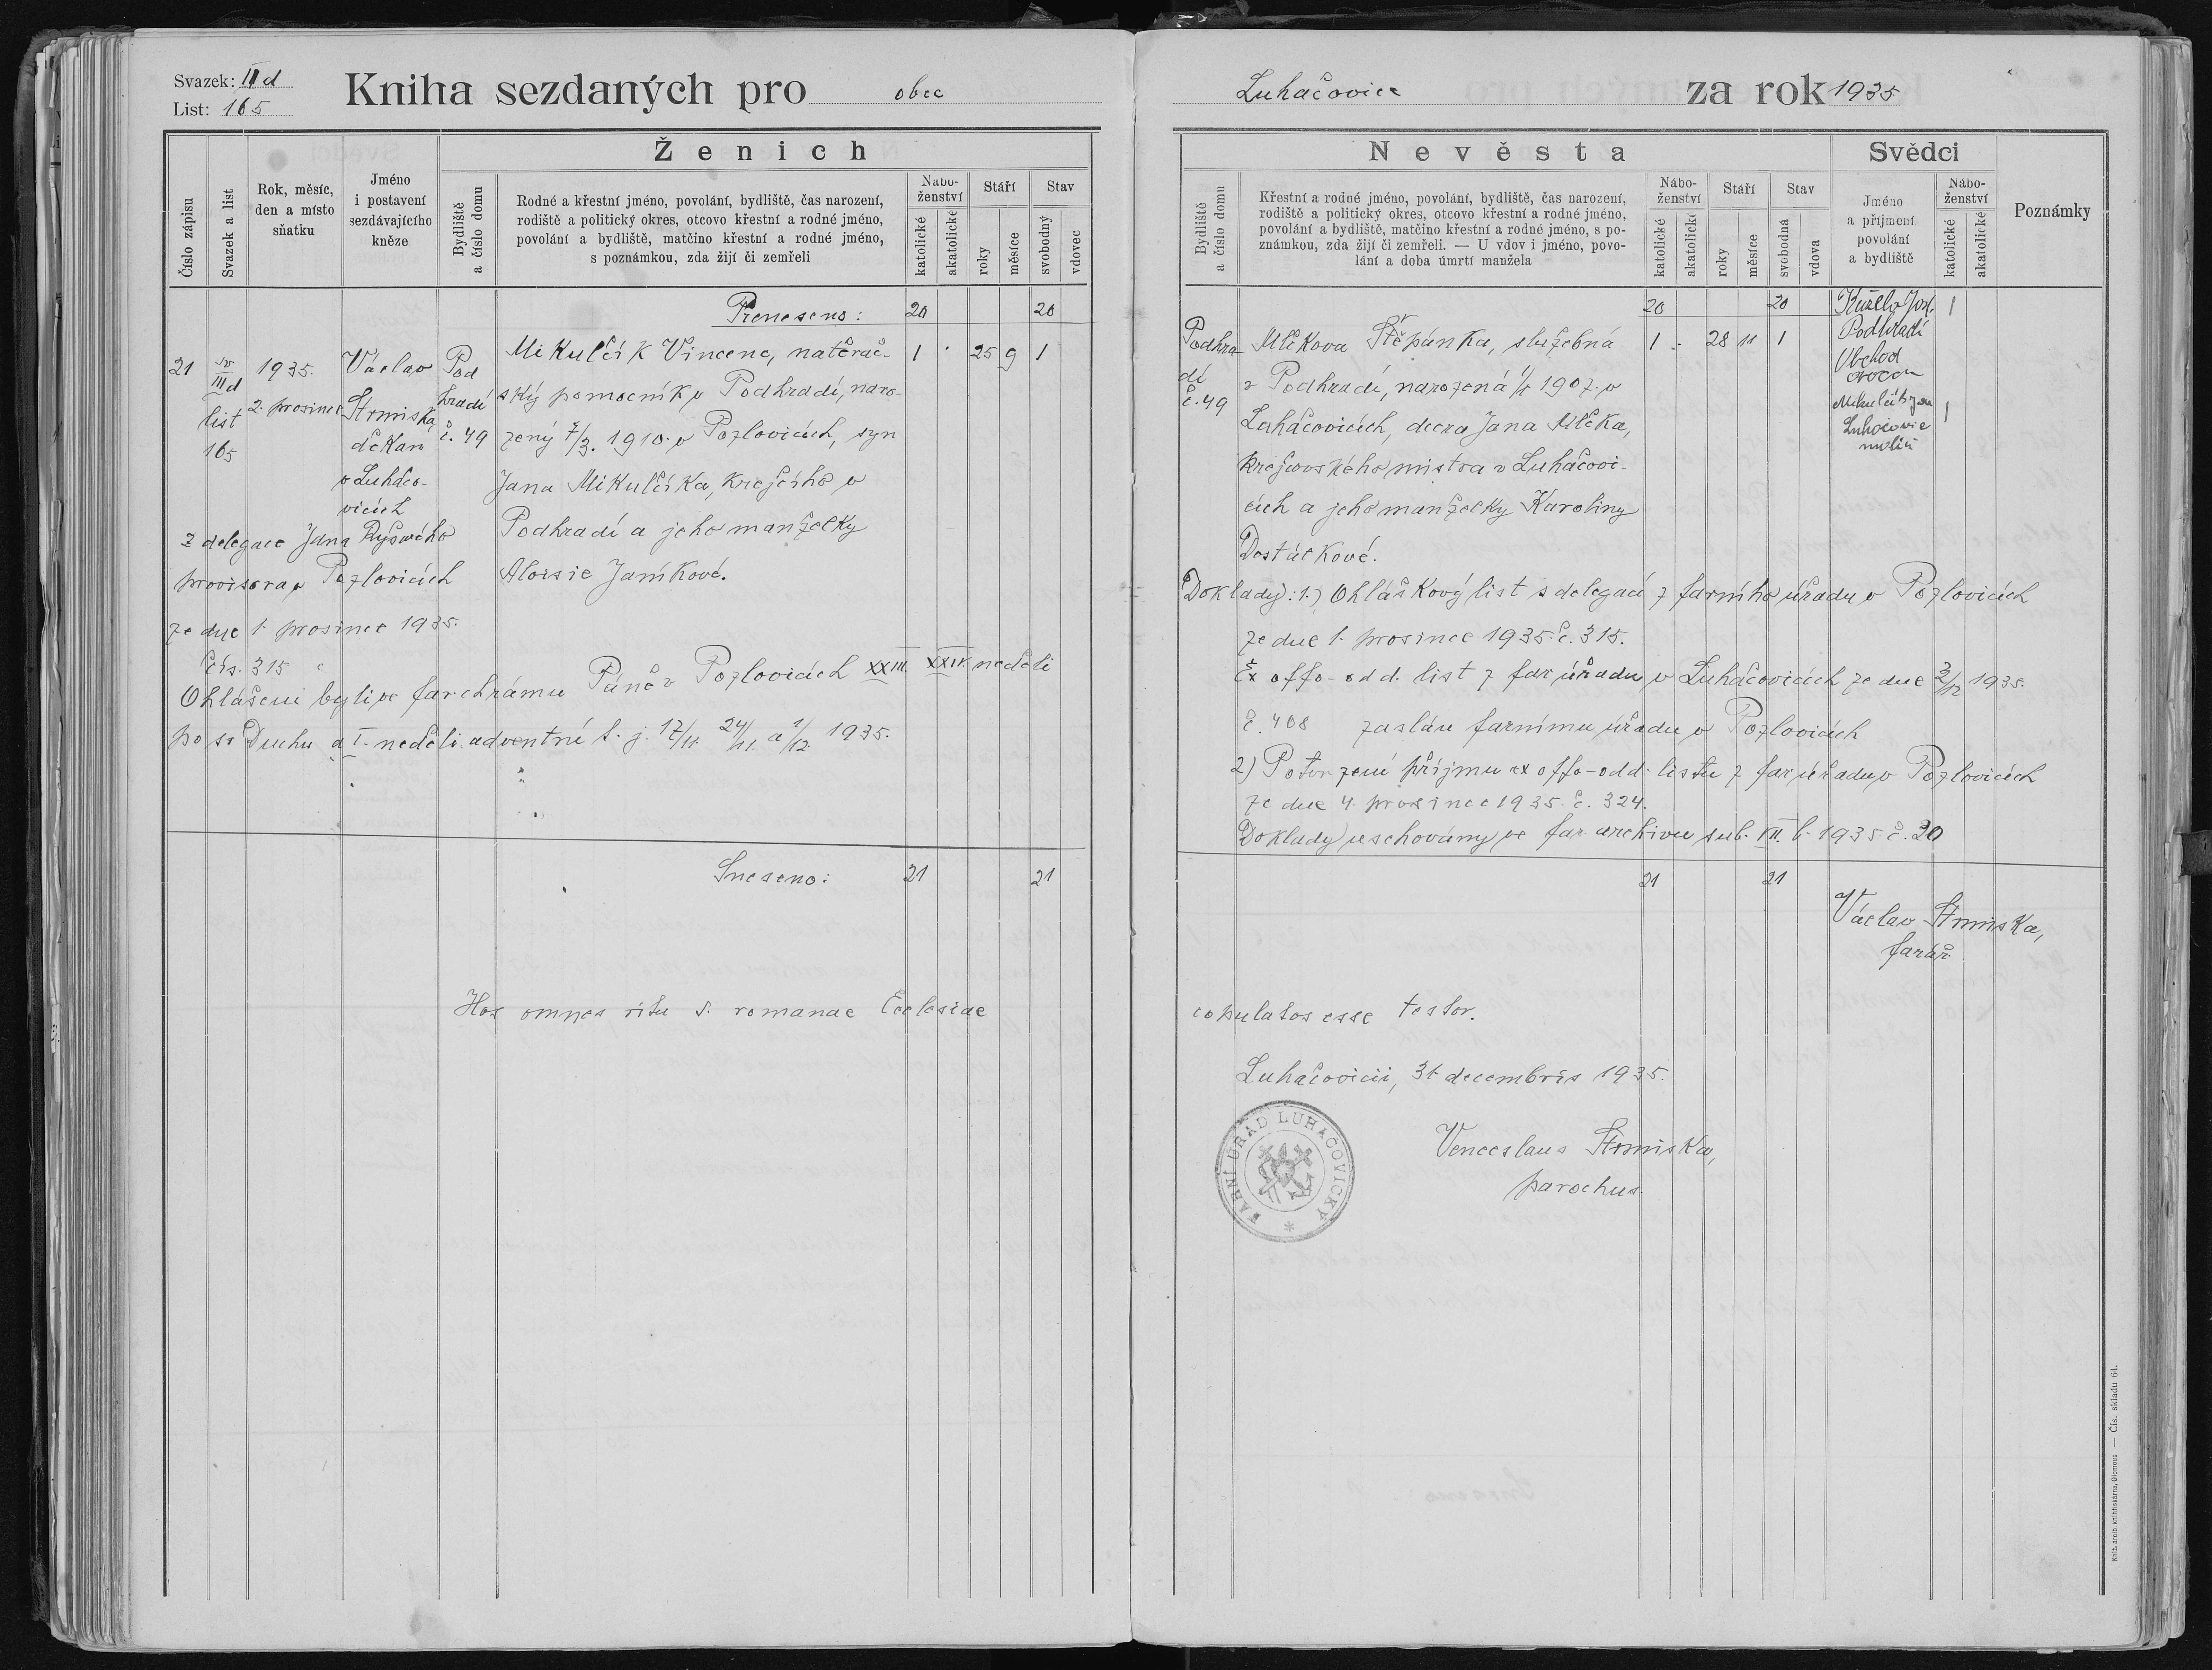 Svazek: II d
List: 165
Kniha sezdaných pro obec
Číslo zápisu
Svazek a list
Rok, měsíc,
den a místo
sňatku
Jméno
i postavení
sezdávajícího
kněze
Ženich
Bydliště
a číslo domu
Rodné a křestní jméno, povolání, bydliště, čas narození,
rodiště a politický okres, otcovo křestní a rodné jméno,
povolání a bydliště, matčino křestní a rodné jméno,
s poznámkou, zda žijí či zemřeli
Nábo-
ženství
katolické
akatolické
Stáří
roky
měsíce
Stav
svobodný
vdovec
Přeneseno: 20 20
21
sv
III d
list
165
1935.
2. prosince
Václav
Strmiska,
děkan
v Luhačo-
vicích
z delegace Jana Ryšavého
provisora v Pozlovicích
ze dne 1. prosince 1935.
čís. 315
Pod
hradí
č. 49
Mikulčík Vincenc, natěrač- 1 . 25 9 1
ský pomocník v Podhradí, naro-
zený 7/3. 1910. v Pozlovicích, syn
Jana Mikulčíka, krejčího v
Podhradí a jeho manželky
Aloisie Janíkové.
Ohlášeni byli ve far. chrámu Páně v Pozlovicích XXIII. XXIV. neděli
po sv Duchu a I. neděli adventní t. j. 17/11. 24/11. a 1/12. 1935.
Sneseno: 21 21
Hos omnes ritu s. romanae Ecclesiae
Luhačovice za rok 1935
Nevěsta
Bydliště
a číslo domu
Křestní a rodné jméno, povolání, bydliště, čas narození,
rodiště a politický okres, otcovo křestní a rodné jméno,
povolání a bydliště, matčino křestní a rodné jméno, s po-
známkou, zda žijí či zemřeli. — U vdov i jméno, povo-
lání a doba úmrtí manžela
Nábo-
ženství
katolické
akatolické
Stáří
roky
měsíce
Stav
svobodná
vdova
Svědci
Jméno
a příjmení
povolání
a bydliště
Nábo-
ženství
katolické
akatolické
Poznámky
20 20
Podhra-
dí
č. 49
Mlčkova Štěpánka, služebná 1 . 28 11 1
v Podhradí, narozená 1/1 1907. v
Luhačovicích, dcera Jana Mlčka,
krejčovského mistra v Luhačovi-
cích a jeho manželky Karoliny
Dostálkové.
Podhradí
Obchod
ovocem
Mikulčík Jan
Luhačovice
1
1
Doklady: 1.) Ohláškový list s delegací z farního úřadu v Pozlovicích
ze dne 1. prosince 1935. č. 315.
Ex offo-odd. list z far. úřadu v Luhačovicích ze dne 2/12 1935.
č. 408 zaslán farnímu úřadu v Pozlovicích
2) Potvrzení příjmu ex offo-odd. listu z far. úřadu v Pozlovicích
ze dne 4. prosince 1935. č. 324.
Doklady uschovány ve far. archivu sub. VII. b. 1935 č. 20
21 21
Václav Strmiska,
farář
copulatos esse testor.
Luhačovicii, 31. decembris 1935.
FARNÍ ÚŘAD LUHAČOVICKÝ *
Venceslaus Strmiska,
parochus.
Kněž. arcib. knihtiskárna, Olomouc — Čís. skladu 64.